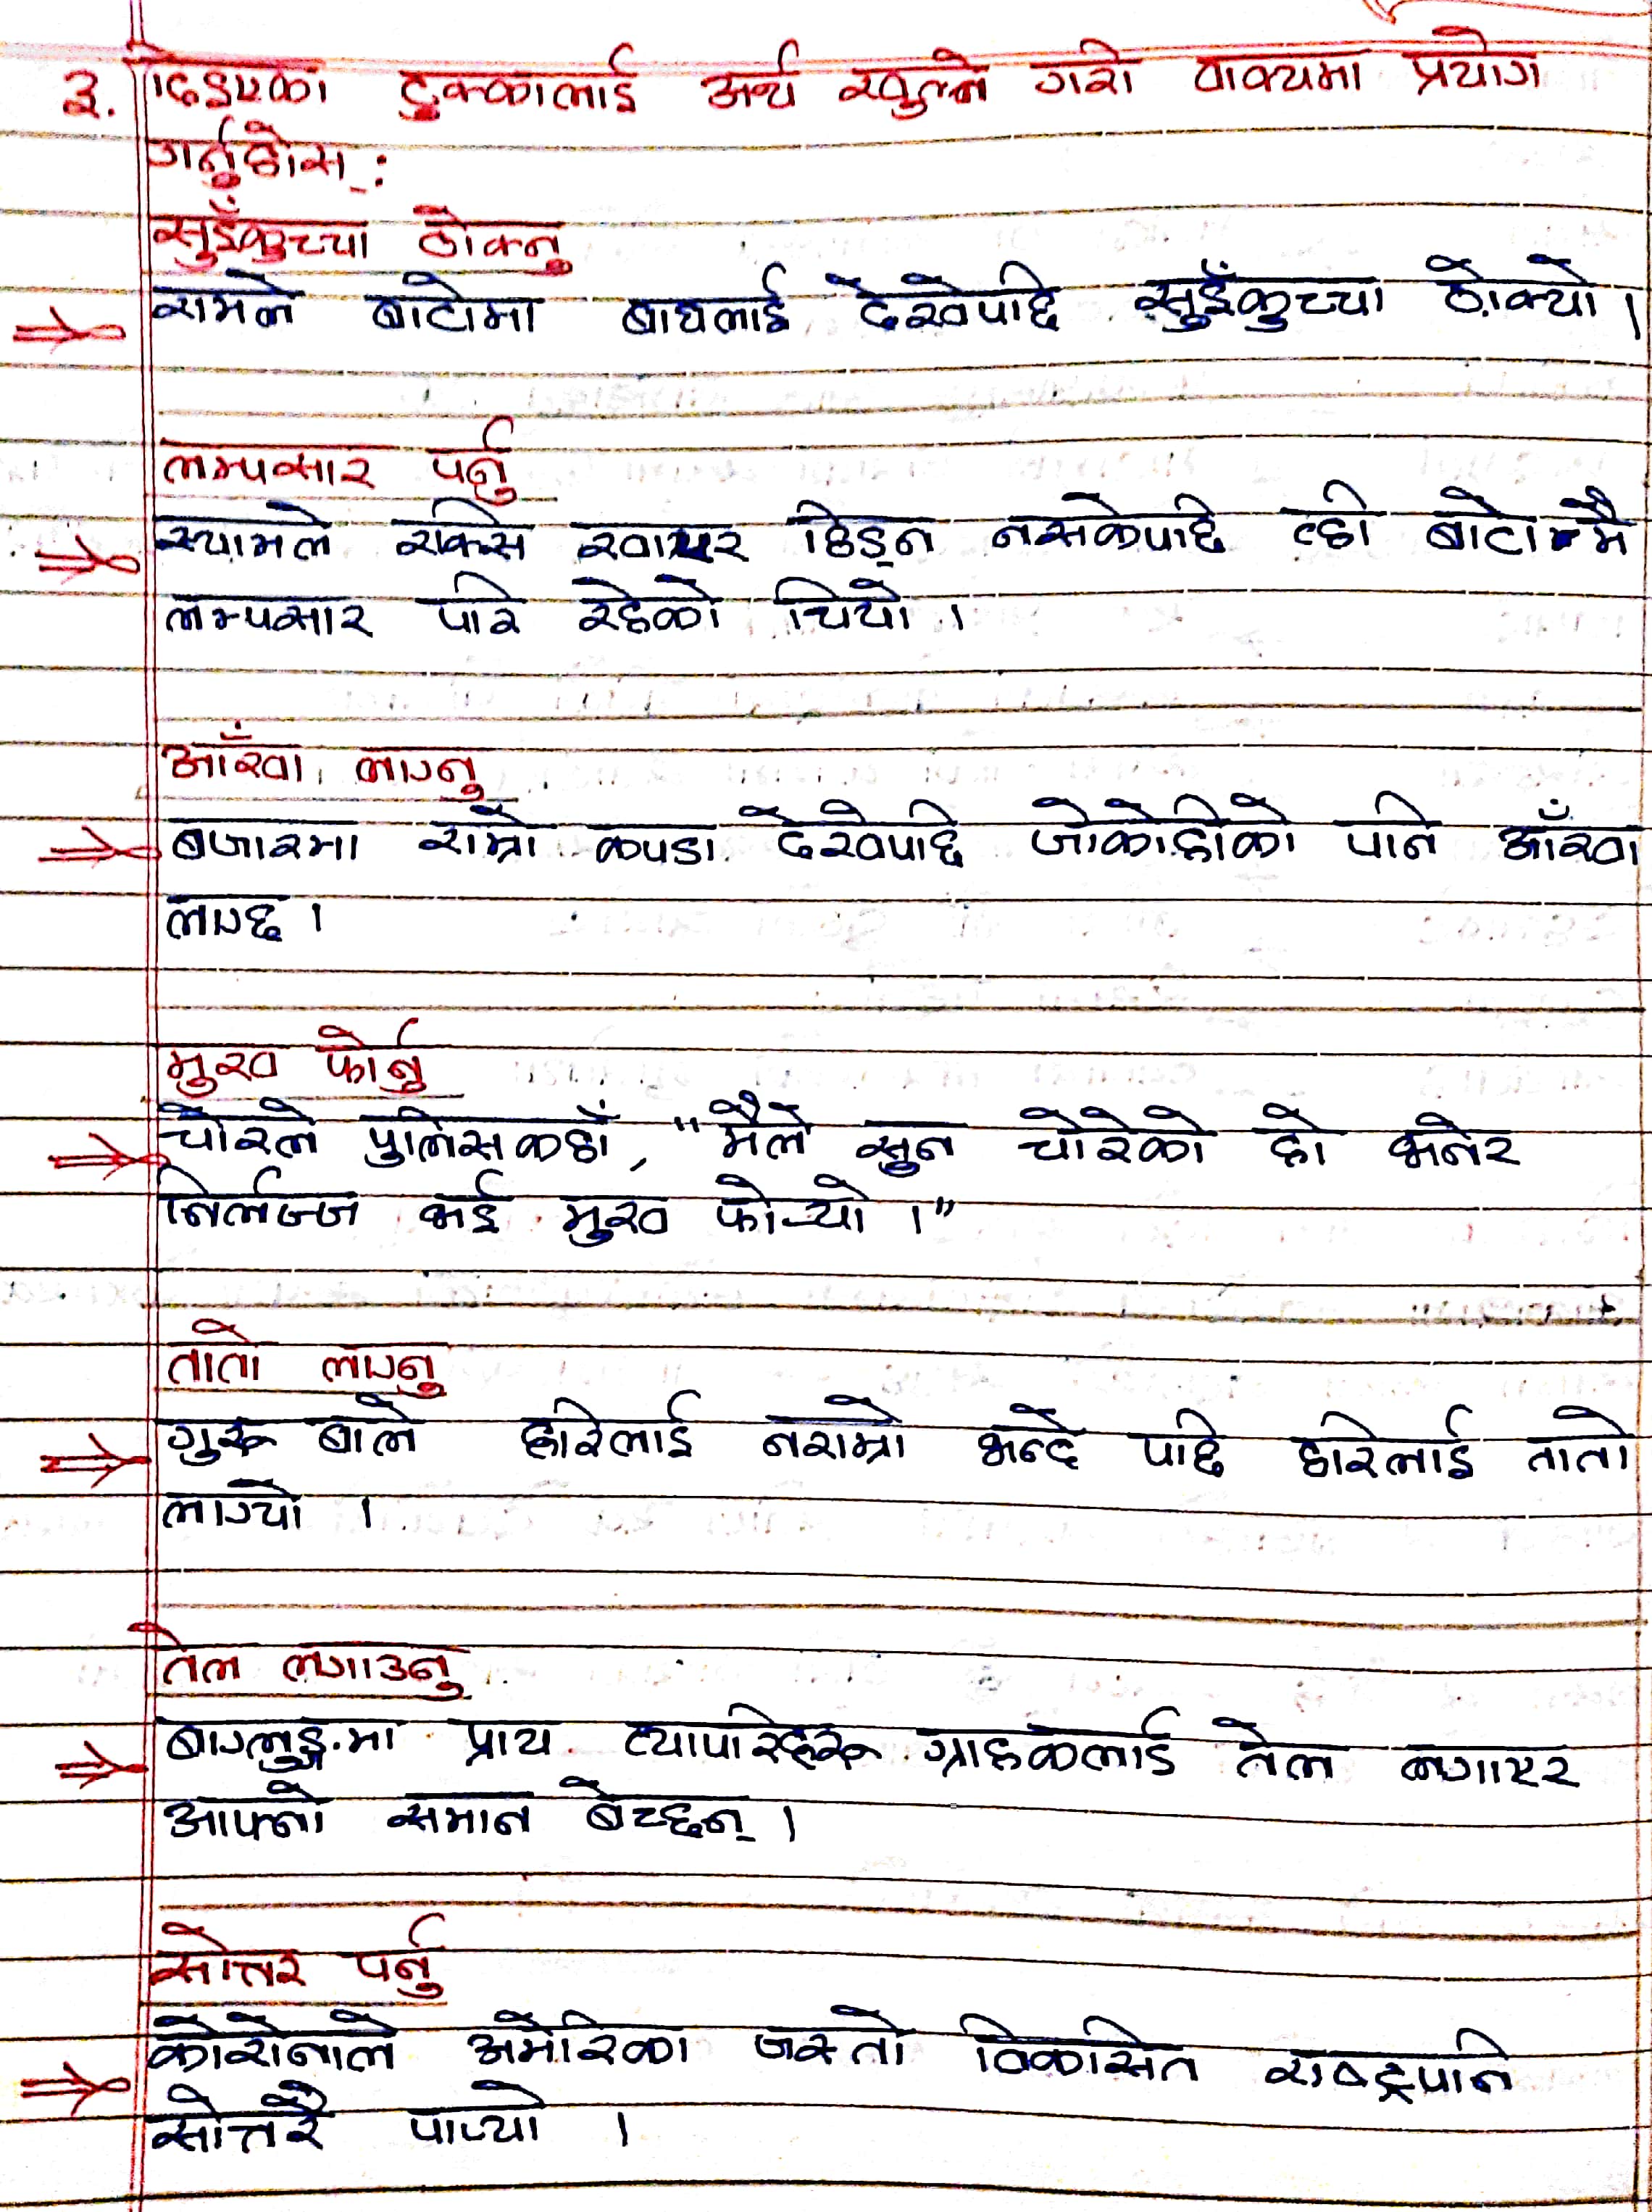 ३. दिइएका टुक्कालाई अर्थ खुल्ने गरी वाक्यमा प्रयोग
गर्नुहोस् :
सुइँकुच्चा ठोक्नु
रामले बाटोमा बाघलाई देखेपछि सुइँकुच्चा ठोक्यो ।
लम्पसार पर्नु
स्यामले रक्सि खाएर हिड्न नसकेपछि त्हो बाटोमै
लम्पसार परि रहेको थियो ।
आँखा लाग्नु
बजारमा राम्रो कपडा देखेपछि जोकोहीको पनि आँखा
लाग्छ ।
मुख फोर्नु
चोरले पुलिसकहाँ, "मैले सुन चोरेको हो भनेर
निर्लज्ज भई मुख फोर्‍यो ।"
तातो लाग्नु
गुरु बाले हरिलाई नराम्रो भन्दे पछि हरिलाई तातो
लाग्यो ।
तेल लगाउनु
बाग्लुङमा प्राय व्यापारिहरू ग्राहकलाई तेल लगाएर
आफ्नो समान बेच्छन् ।
सोत्तर पर्नु
कोरोनाले अमेरिका जस्तो विकसित राष्ट्रपनि
सोत्तरै पार्‍यो ।